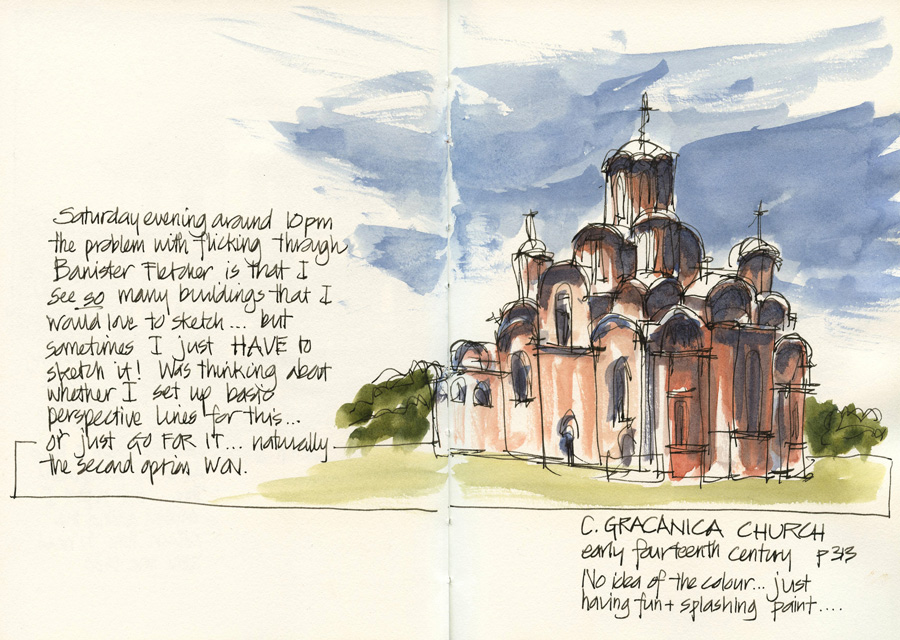 Saturday evening around 10pm
the problem with flicking through
Banister Fletcher is that I
see so many buildings that I
would love to sketch... but
sometimes I just HAVE to
sketch it! Was thinking about
whether I set up basic
perspective lines for this...
or just GO FOR IT... naturally
the second option won.
C. GRACANICA CHURCH
early fourteenth century p 313
No idea of the colour... just
having fun + splashing paint....